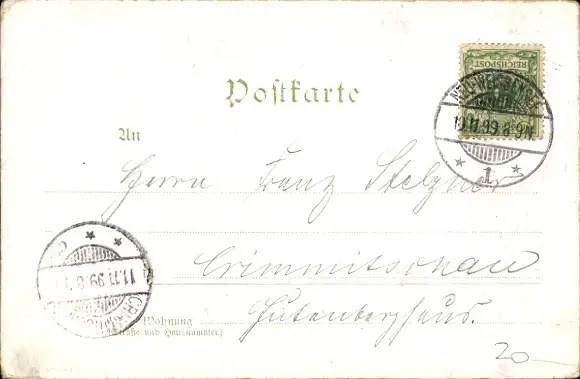 REICHSPOST
10.11.99.8-9N.
1
Postkarte
An
Herrn Franz Stelzner
Crimmitschau
Gutenberghaus.
11.11.99.
Wohnung
(Straße und Hausnummer)
20.-